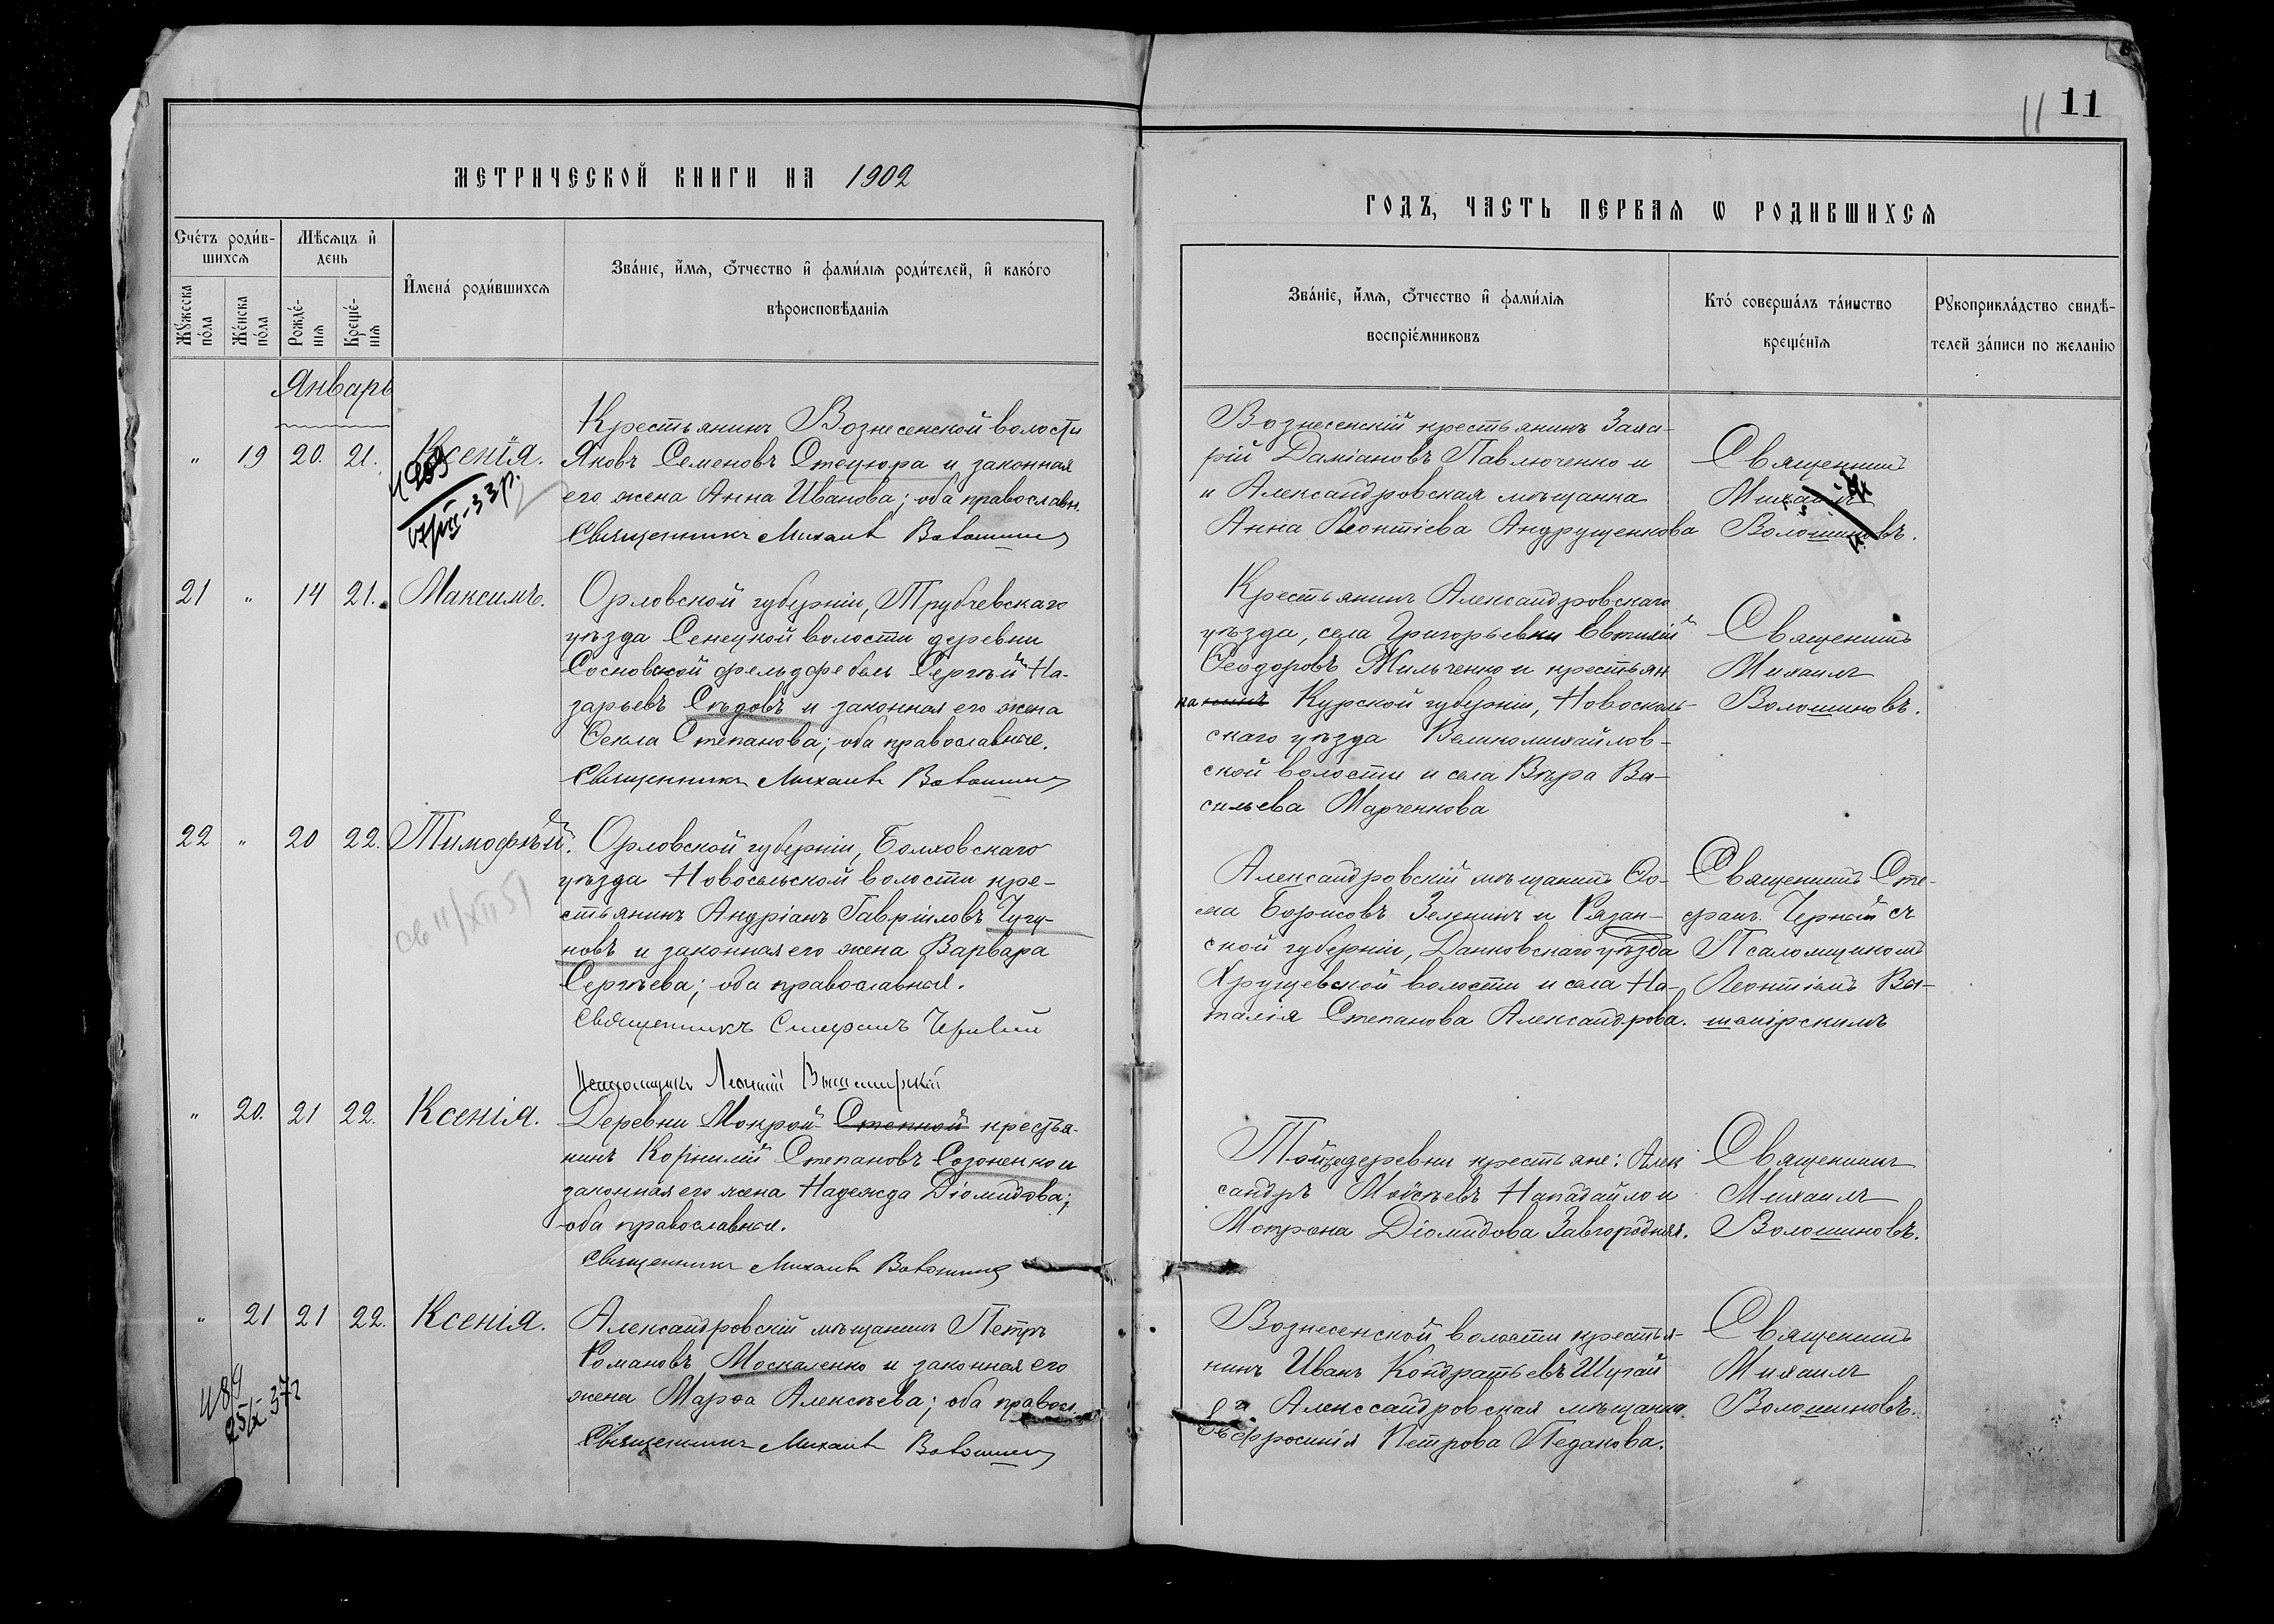 11
11
МЕТРИЧЕСКОЙ КНИГИ НА 1902
ГОДЪ, ЧАСТЬ ПЕРВАЯ Ѡ РОДИВШИХСЯ
Счетъ родив-
шихся
Мужеска пола
Женска пола
Мѣсяцъ и
день
Рожде-
нія
Креще-
нія
Имена родившихся
Званіе, имя, отчество и фамилія родителей, и какого
вѣроисповѣданія
Званіе, имя, отчество и фамилія
воспріемниковъ
Кто совершалъ таинство
крещенія
Рукоприкладство свидѣ-
телей записи по желанію
Январь
" 19 20. 21. Ксенія.
Крестьянинъ Вознесенской волости
Яковъ Семеновъ Стецюра и законная
его жена Анна Иванова; оба православн.
Священникъ Михаилъ Волошинъ
Вознесенскій крестьянинъ
Даміановъ Павлюченко и
и Александровская мѣщанка
Анна Леонтіева Андрущенкова
Священникъ
Михаилъ
Волошиновъ.
21 " 14 21. Максимъ.
Орловской губерніи, Трубчевскаго
уѣзда Сенецкой волости деревни
Сосновской фельдфебель Сергѣй На-
зарьевъ Сѣдовъ и законная его жена
Ѳекла Степанова; оба православные.
Священникъ Михаилъ Волошинъ
Крестьянинъ Александровскаго
уѣзда, села Григорьевки Евтихій
Ѳеодоровъ Жильченко и крестьян
ка Курской губерніи, Новосколь-
скаго уѣзда Великомихайлов-
ской волости и села Вѣра Ва-
сильева Марченкова
Священникъ
Михаилъ
Волошиновъ.
22 " 20 22. Тимофѣй.
Орловской губерніи, Болховскаго
уѣзда Новосельской волости кре-
стьянинъ Андріанъ Гавріиловъ Чугу-
новъ и законная его жена Варвара
Сергѣева; оба православныя.
Священникъ Стефанъ Чернай
Псаломщикъ Леонтій Вышемірскій
Александровскій мѣщанинъ Ѳо-
ма Борисовъ Зеленинъ и Рязан-
ской губерніи, Данковскаго уѣзда
Хрущевской волости и села На-
талія Степанова Александрова.
Священникъ Сте-
фанъ Чернай съ
Псаломщикомъ
Леонтіемъ Вы-
шемірскимъ
" 20. 21 22. Ксенія.
Деревни Мокрой Степной крестья-
нинъ Корнилій Степановъ Созоненко и
законная его жена Надежда Діомидова;
оба православныя.
Священникъ Михаилъ Волошинъ
Той же деревни крестьяне: Алек
сандръ Моисѣевъ Нападайло и
Мотрона Діомидова Завгородняя.
Священникъ
Михаилъ
Волошиновъ.
" 21 21 22. Ксенія.
Александровскій мѣщанинъ Петръ
Романовъ Москаленко и законная его
жена Марѳа Алексѣева; оба правосл.
Священникъ Михаилъ Волошинъ
Вознесенской волости крестья-
нинъ Иванъ Кондратьевъ Шугай
и Алекссандровская мѣщанка
Евфросинія Петрова Педакова.
Священникъ
Михаилъ
Волошиновъ.